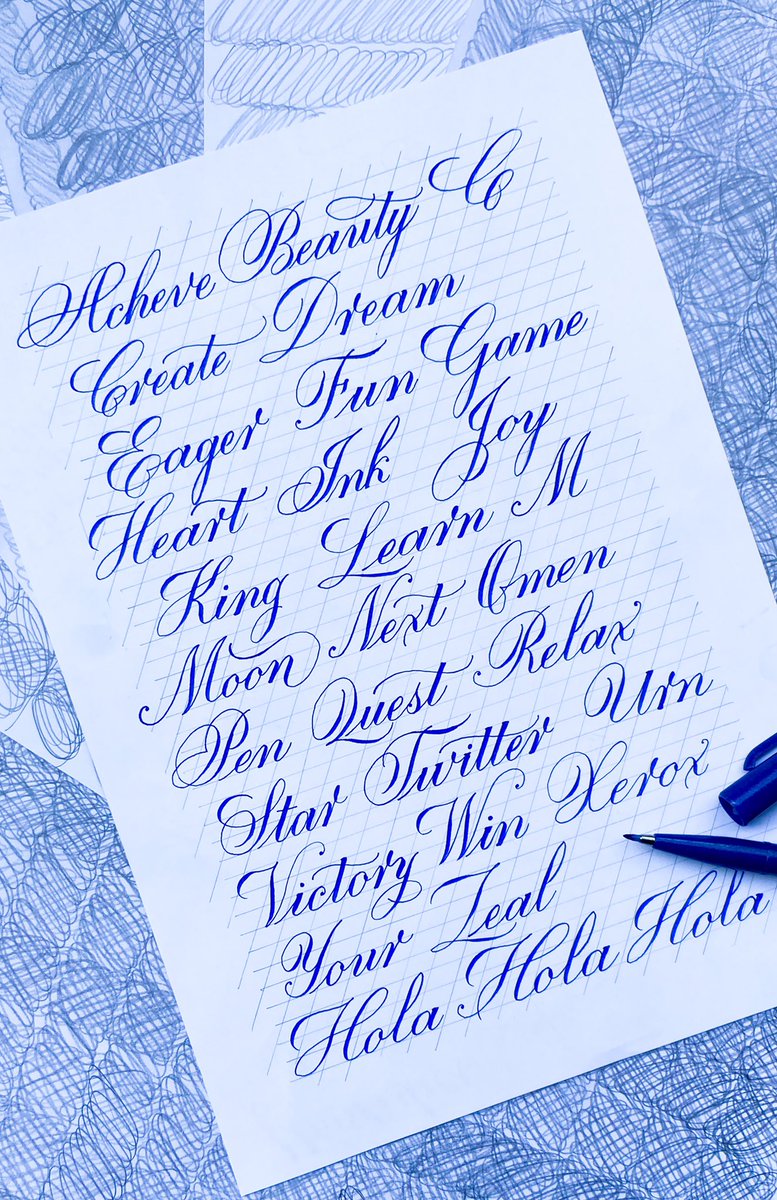 Acheve Beauty C
Create Dream
Eager Fun Game
Heart Ink Joy
King Learn M
Moon Next Omen
Pen Quest Relax
Star Twitter Urn
Victory Win Xerox
Your Zeal
Hola Hola Hola